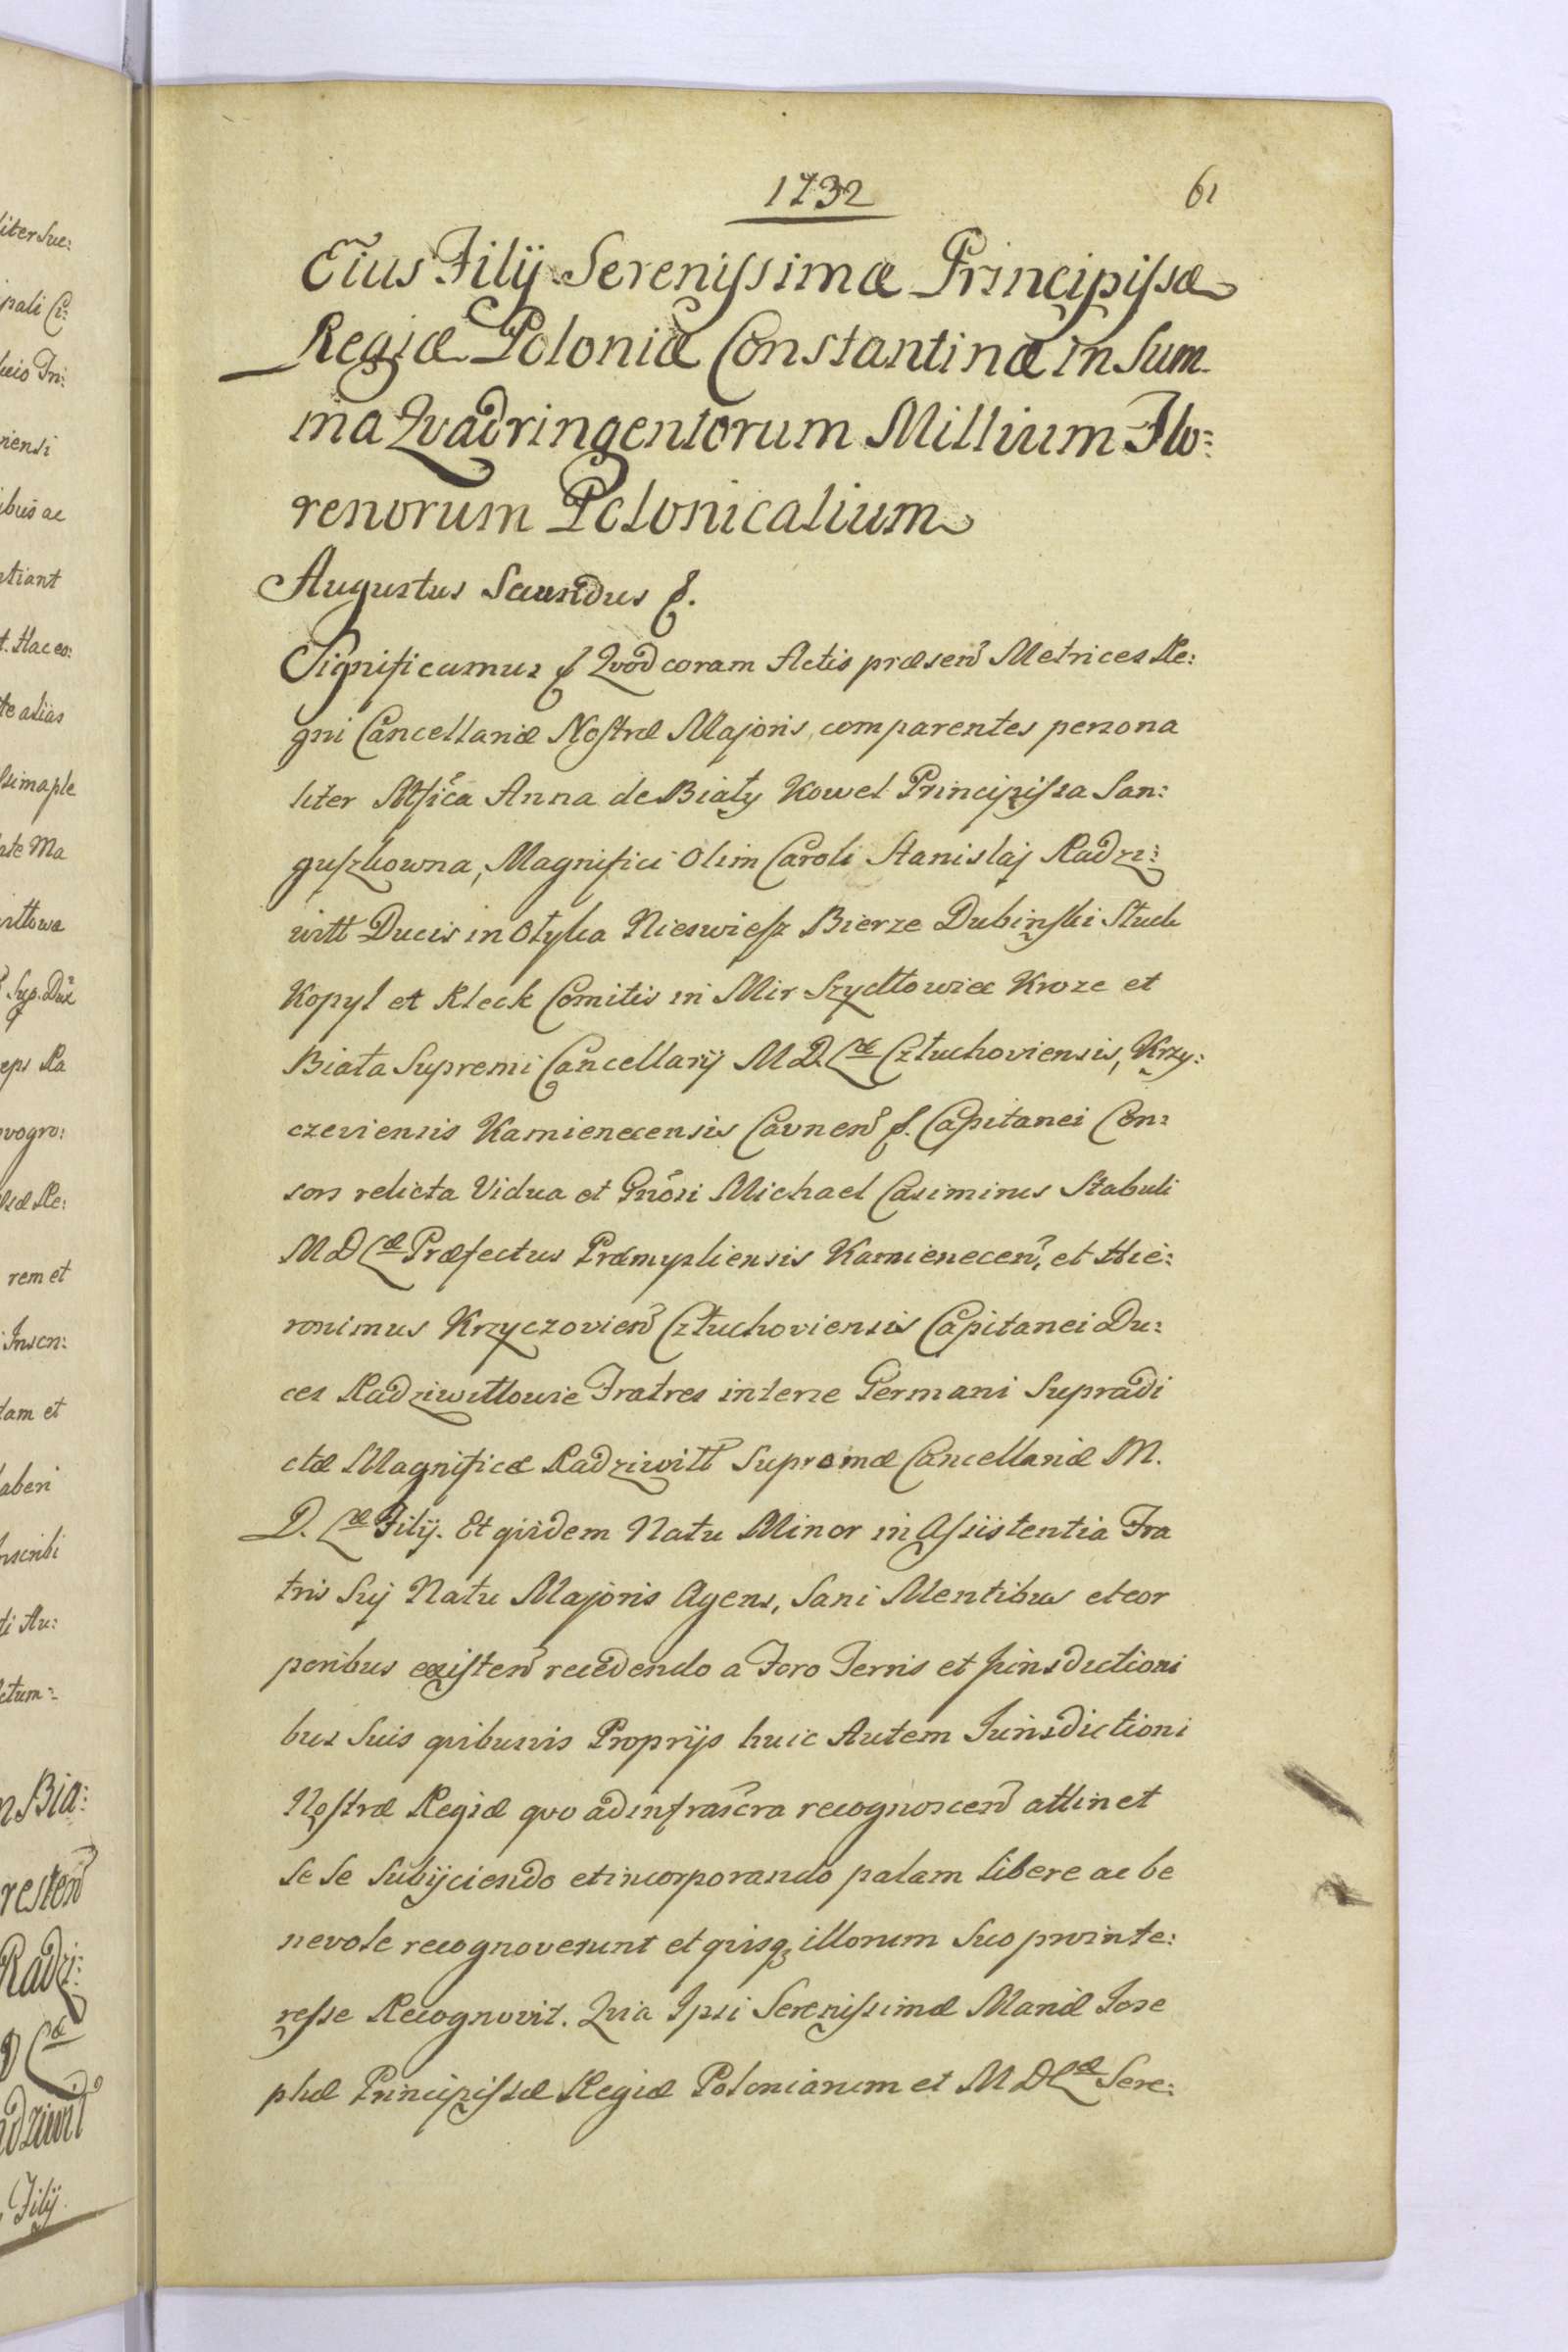 1732
61
Eius Filij Serenissimæ Principissæ
Regiæ Poloniæ Constantinæ in Sum-
ma Qvadringentorum Millium Flo:
renorum Polonicalium
Augustus Secundus &.
Significamus & Qvod coram Actis præsen Metrices Re:
gni Cancellariæ Nostræ Majoris, comparentes persona
liter Mfica Anna de Biały Kowel Principissa San:
guszkowna, Magnifici Olim Caroli Stanislaj Radzi:
wiłł Ducis in Otyka Nieswiesz Bierze Dubinski Stuck
Kopyl et Kleck Comitis in Mir Szydłowiec Kroze et
Biała Supremi Cancellarij M D. Læ Człuchoviensis, Krzy:
czeviensis Kamienecensis Caunen &. Capitanei Con:
sors relicta Vidua et Gnosi Michael Casimirus Stabuli
M D Læ Præfectus Præmysliensis Kamienecen, et Hie:
ronimus Krzyczovien Człuchoviensis Capitanei Du:
ces Radziwiłłowie Fratres inter se Germani Supradi
ctæ Magnificæ Radziwiłł Supremæ Cancellariæ M.
D. Læ Filij. Et qvidem Natu Minor in Assistentia Fra
tris Suj Natu Majoris Agens, Sani Mentibus et cor
poribus existen recedendo a Foro Terris et Jurisdictioni
bus Suis qvibusvis Proprijs huic Autem Jurisdictioni
Nostræ Regiæ qvo ad infrascra recognoscen attinet
Se Se Subijciendo et incorporando palam libere ac be
nevole recognoverunt et qvisq illorum Suo pro inte:
resse Recognovit. Qvia Ipsi Serenissimæ Mariæ Jose
phæ Principissæ Regiæ Poloniarum et M D Læ Sere: